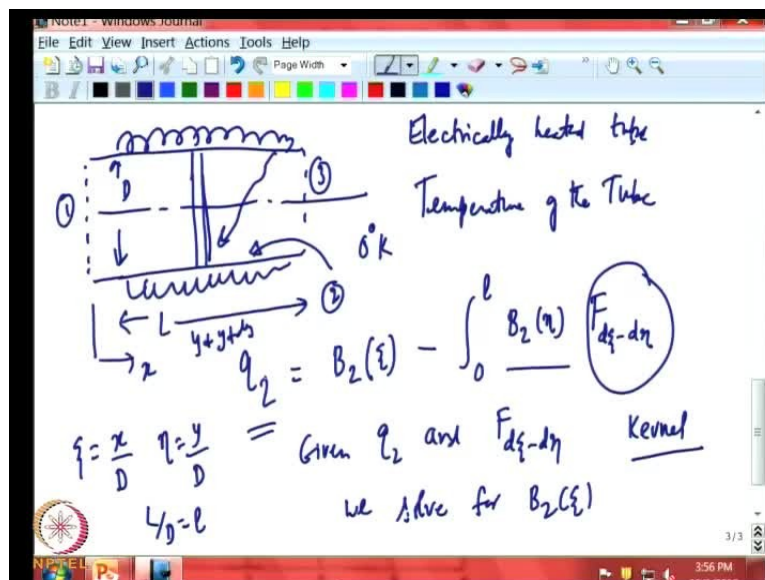 Note1 - Windows Journal
File Edit View Insert Actions Tools Help
Page Width
B I
Electrically heated tube
D
①
③
Temperature of the Tube
0°K
②
L
y + y+dy
x
q₂ = B₂(ξ) - ∫₀ˡ B₂(η) F_{dξ-dη}
ξ = x/D η = y/D
Given q₂ and F_{dξ-dη} Kernel
L/D = l
we solve for B₂(ξ)
3/3
NPTEL
3:56 PM